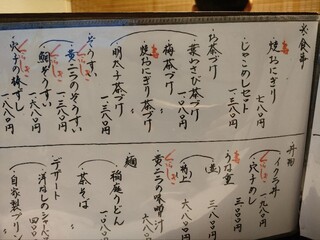 ※食事
焼おにぎり
七八〇円
じゃこめしセット
一、三八〇円
お茶づけ
葉わさび茶づけ
一、〇八〇円
梅茶づけ
焼おにぎり茶づけ
明太子茶づけ
一、三八〇円
ぞうすい
黄ニラのぞうすい
鯛ぞうすい
一、六八〇円
穴子の棒ずし
一、八八〇円
丼物
イクラ丼
穴子めし
うな重
三、八八〇円
特上
黄ニラの味噌汁
六八〇円
麺
稲庭うどん
一、〇八〇円
茶そば
デザート
洋なしのシャーベット
四八〇円
自家製プリン